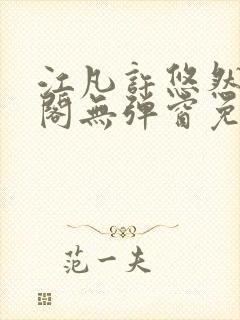 江凡許悠然
閣無彈窗免
范一夫